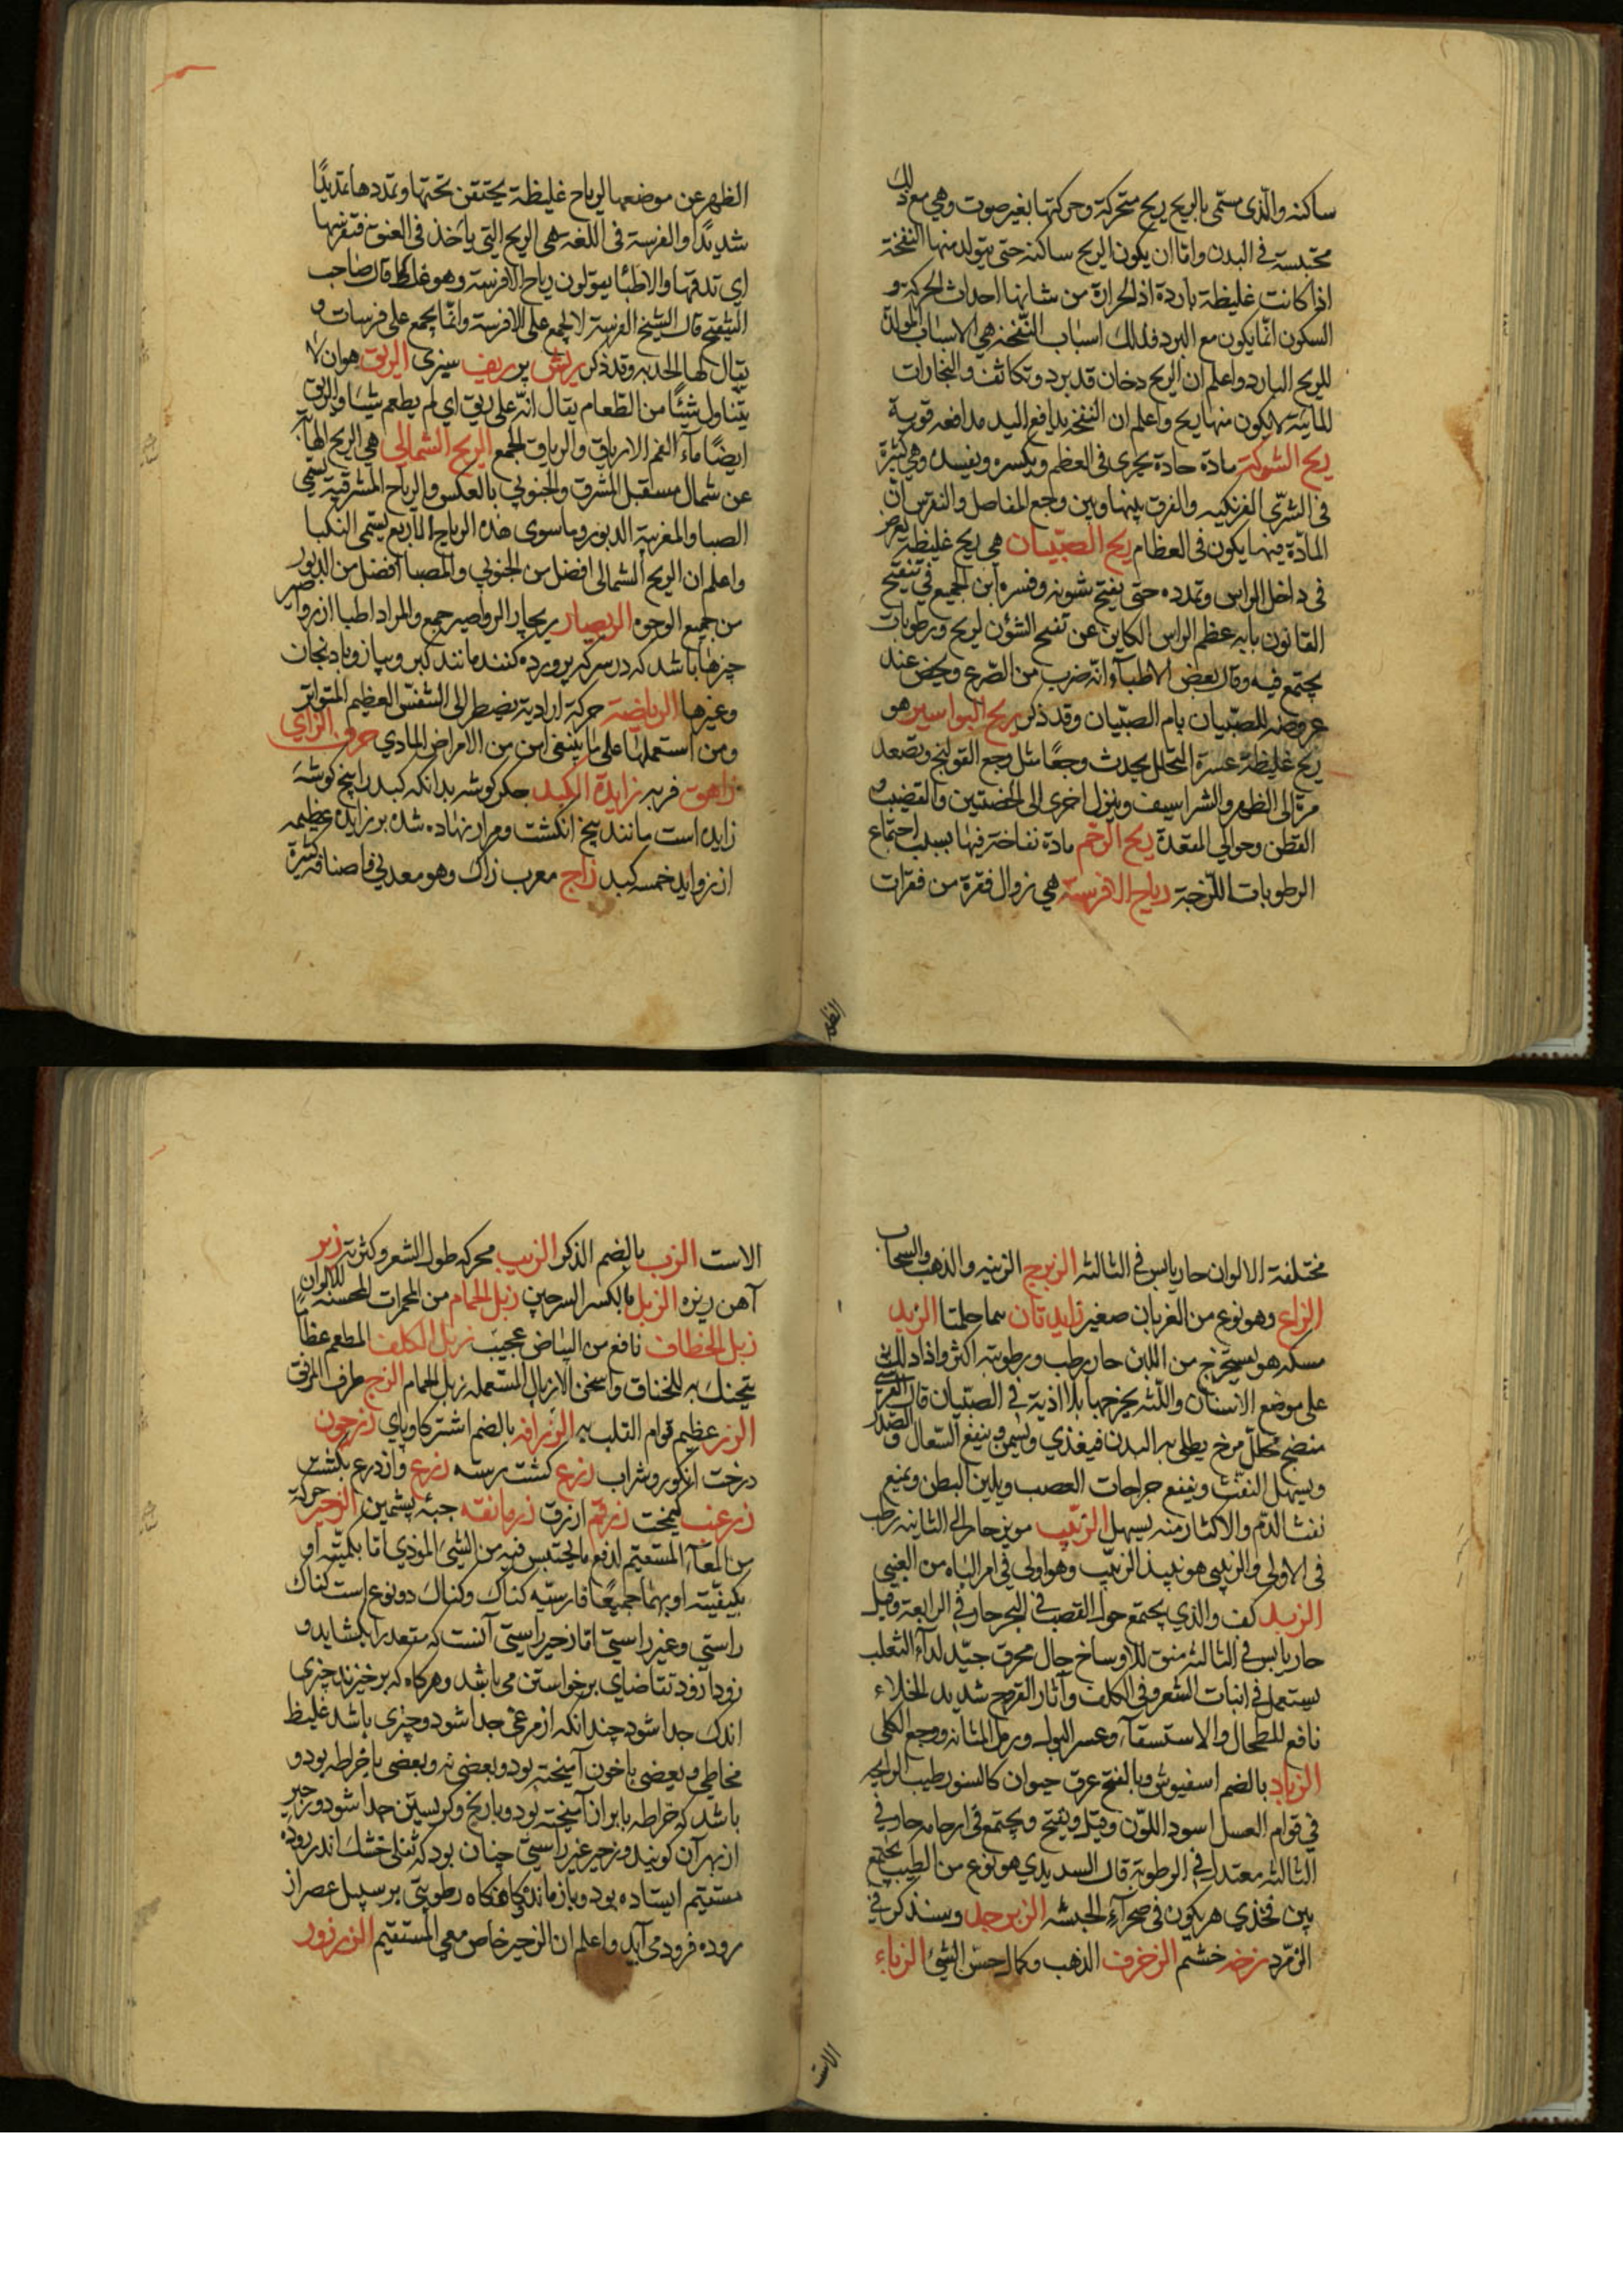 ساكنه والّذى يسمّى بالريح ريح متحركة وحركتها بغير صوت وهي مع ذلك
محتبسة فى البدن وامّا ان يكون الريح ساكنه حتى يتولد منها النفخة
اذا كانت غليظة باردة اذ الحرارة من شانها احداث الحركة و
السكون انّما يكون مع البرد فلذلك اسباب النّفخة هي الاسباب المولدة
للريح البارد واعلم ان الريح دخان قد برد وتكاثف والبخارات
المائية لا يكون منها ريح واعلم ان النفخه يدافع اليد مدافعه قوية
ريح الشوكة مادة حادة يجرى فى العظم ويكسره ويفسده وهي كثيرة
فى الفرنكيه والفرق بينها وبين وجع المفاصل والنقرس انّ
المادّة فيها يكون فى العظام ريح الصبّيان هي ريح غليظة يعرض
فى داخل الراس وتمدده حتى يفتح شئونه وفسره ابن الجميع في تنقيح
القانون بانه عظم الراس الكاين عن تفتح الشئون لريح ورطوبات
يجتمع فيه وقال بعض الاطباء انّه ضرب من الصّرع ويخص عند
عروضه للصبّيان بام الصبّيان وقد ذكر ريح البواسير هو
ريح غليظة عسرة التحلل يحدث وجعًا مثل وجع القولنج وتصعد
مرّة الى الظهر والشراسيف وينزل اخرى الى الخصيتين والقضيب و
القطن وحوالى المقعدة ريح الرّحم مادة نفاخة فيها بسبب اجتماع
الرطوبات اللّزجة رياح الافرسة هي زوال فقرة من فقرات
الظهر
الظهر عن موضعها لرياح غليظة يحتقن تحتها وتمددها تمديدًا
شديدًا والفرسة فى اللغه هى الريح التى ياخذ فى العنق فتفرسها
اى تدقها والاطبّا يقولون رياح الافرسة وهو غلط قال صاحب
التنقيح قال الشيخ الفرسة لا يجمع على الافرسة وانّما يجمع على فرسات و
يقال لها الحدبه وقد ذكر ريش پر ريف سبزى الريق هو ان لا
يتناول شيئًا من الطّعام يقال انّه على ريق اي لم يطعم شيئا والريق
ايضًا ماء الفم الارياق والرياق الجمع الريح الشمالي هي الريح الهابّة
عن شمال مستقبل المشرق والجنوبي بالعكس والرياح المشرقية يسمّى
الصبا والمغربية الدبور وما سوى هذه الرياح الاربع يسمّى النكبا
واعلم ان الريح الشمالى افضل من الجنوبي والصبا افضل من الدبور
من جميع الوجوه الريصار ريچار الرواصير جمع والمراد اطبا از رواصير
چيزها باشد كه در سركه پرورده كنند مانند كبر وپياز وبادنجان
وغيرها الرياضة حركة ارادية يضطر الى التنفّس العظيم المتواتر
ومن استعملها على ما ينبغى امن من الامراض المادي حرف الزاي
زاهق فربه زايدة الكبد جگر گوشه بدانكه كبد را پنج گوشه
زايده است مانند پنج انگشت ومراره نهاده شده بر زايده عظيمه
از زوايد خمسه كبد زاج معرب زاك وهو معدني واصنافه كثيرة
مختلفة الالوان حار يابس فى الثالثه الزبرج الزينه والذهب والسحاب
الزاغ وهو نوع من الغربان صغير زايدتان سما حلمتا الزبد
مسكه هو يستخرج من اللبن حار رطب ورطوبته اكثر واذا دلك به
على موضع الاسنان واللّثه يخرجها بلا اذية فى الصبّيان قال القرشي
منضج محلّل مرخ يطلى به البدن فيغذي ويسمن وينفع السّعال والصّدر
ويسهل النفث وينفع جراحات العصب ويلين البطن ويمنع
نفث الدّم والاكثار منه يسهل الزبيب مويز حار الى الثانيه رطب
فى الاولى والزبيبى هو نبيذ الزبيب وهو اولى فى امر الباه من العنبي
الزبد كف والذي يجتمع حول القصب فى البحر حار فى الرابعة وقيل
حار يابس فى الثالثه منق للاوساخ جال محرق جيّد لداء الثعلب
يستعمل فى انبات الشعر وفى الكلف وآثار القروح شديد الجلاء
نافع للطحال والاستسقاء وعسر البول ورمل المثانه ووجع الكلى
الزباد بالضم اسفيوش وبالفتح عرق حيوان كالسنور طيب الرايحه
في قوام العسل اسود اللّون وقيل ويفتح ويجتمع فى ارحامه حار في
الثالثه معتدل في الرطوبة قال السديدي هو نوع من الطيب يجتمع
بين فخذي هر يكون فى صحراء الحبشه الزبرجد وسنذكر في
الزمّرد زخم خشم الزخرف الذهب وكمال حسن الشئ الزباء
الاست
الاست الزب بالضم الذكر الزبب محركه طول الشعر وكثرته زبر
آهن ريزه الزبل بالكسر السرجين زبل الحمام من المحمرات المحسنة للالوان
زبل الخطاف نافع من البياض عجيب زبل الكلب المطعم عظامًا
يتحنك به للخناق واسخن الازبال المستعمله زبل الحمام الزج طرف المرفق
الزر عظيم قوام القلب به الزرافه بالضم اشتر گاو پاى زرجون
درخت انگور وشراب زرع كشت رسته زرع واز درع بكشت
زرغب كيمخت زرقم ازرق زرمانقه جبّه پشمين الزحير حركة
من المعاء المستقيم لدفع ما يحتبس فيه من الشئ المؤذي امّا بكميّته او
بكيفيّته او بهما جميعًا فارسيّه كناك وكناك دو نوع است كناك
راستي وغير راستي امّا زحير راستي آنست كه مقعد را بكشايد و
زودا زود تقاضاى برخواستن مى باشد وهرگاه كه برخيزند چيزى
اندك جدا شود چندانكه از مرغى جدا شود وچيزى باشد غليظ
مخاطى وبعضى با خون آميخته بود وبعضى نه وبعضى با خراطه بود و
باشد كه خراطه با بران آميخته بود وبا رنج وگريستن جدا شود وزحير
از بهر آن گويند وزحير غير راستي چنان بود كه ثفلى خشك اندر روده
مستقيم ايستاده بود وباز مانده گاه گاه رطوبتى بر سبيل عصر از
روده فرود مى آيد واعلم ان الزحير خاص معى المستقيم الزرزور